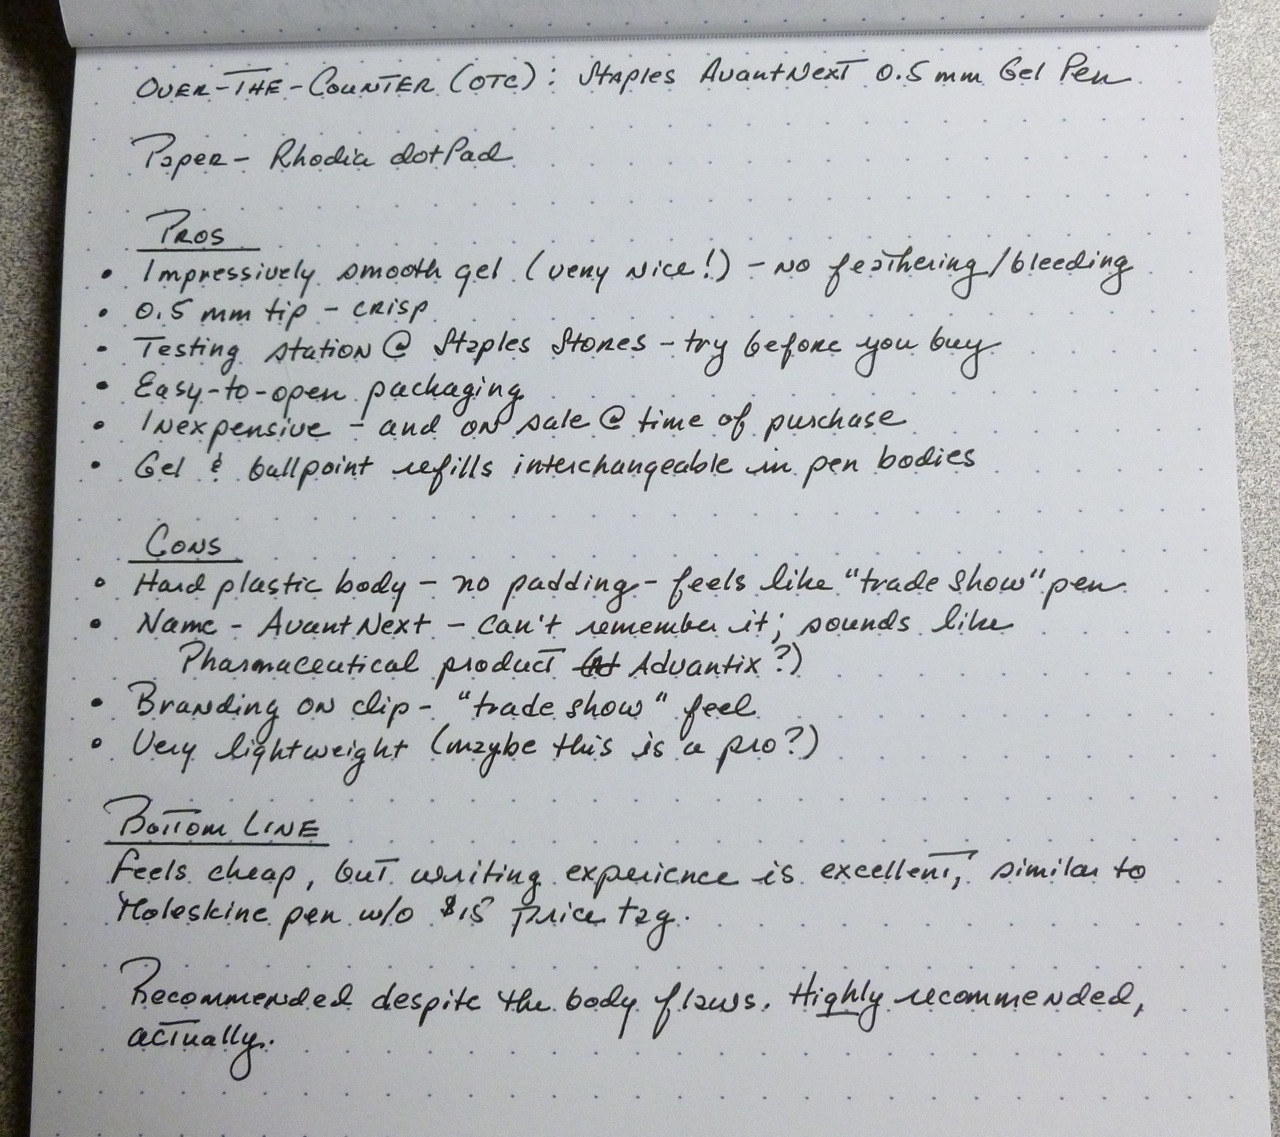 Over-The-Counter (OTC): Staples AvantNext 0.5 mm Gel Pen
Paper - Rhodia dotPad
Pros
• Impressively smooth gel (very nice!) - no feathering/bleeding
• 0.5 mm tip - crisp
• Testing station @ Staples Stores - try before you buy
• Easy-to-open packaging
• Inexpensive - and on sale @ time of purchase
• Gel & ballpoint refills interchangeable in pen bodies
Cons
• Hard plastic body - no padding - feels like "trade show" pen
• Name - AvantNext - can't remember it; sounds like
Pharmaceutical product Advantix?)
• Branding on clip - "trade show" feel
• Very lightweight (maybe this is a pro?)
Bottom Line
Feels cheap, but writing experience is excellent, similar to
Moleskine pen w/o $15 price tag.
Recommended despite the body flaws. Highly recommended,
actually.